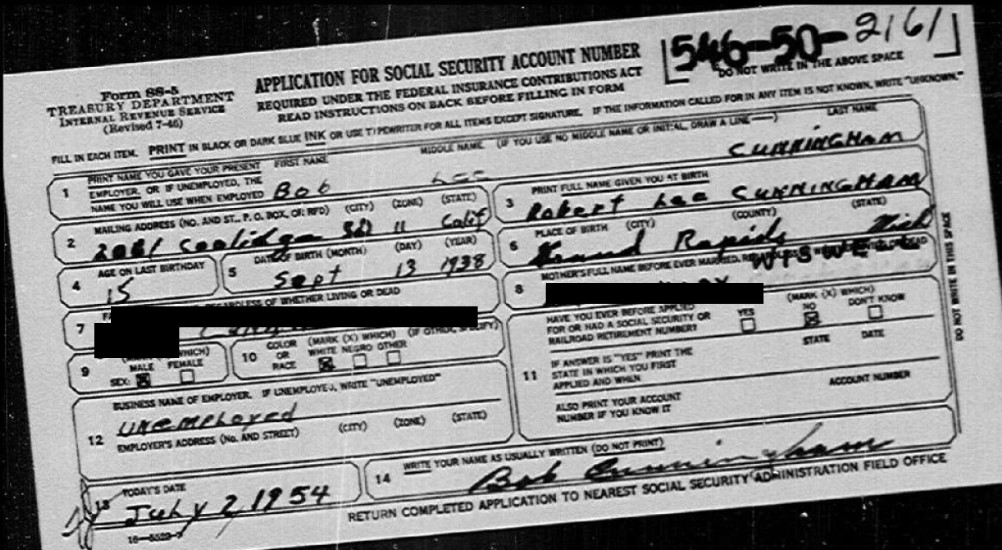 546-50-2161
Form SS-5
TREASURY DEPARTMENT
INTERNAL REVENUE SERVICE
(Revised 7-46)
APPLICATION FOR SOCIAL SECURITY ACCOUNT NUMBER
REQUIRED UNDER THE FEDERAL INSURANCE CONTRIBUTIONS ACT
READ INSTRUCTIONS ON BACK BEFORE FILLING IN FORM
DO NOT WRITE IN THE ABOVE SPACE
FILL IN EACH ITEM. PRINT IN BLACK OR DARK BLUE INK OR USE TYPEWRITER FOR ALL ITEMS EXCEPT SIGNATURE. IF THE INFORMATION CALLED FOR IN ANY ITEM IS NOT KNOWN, WRITE "UNKNOWN."
1 PRINT NAME YOU GAVE YOUR PRESENT EMPLOYER, OR IF UNEMPLOYED, THE NAME YOU WILL USE WHEN EMPLOYED
FIRST NAME MIDDLE NAME (IF YOU USE NO MIDDLE NAME OR INITIAL, DRAW A LINE —) LAST NAME
Bob Lee CUNNINGHAM
2 MAILING ADDRESS (NO. AND ST., P. O. BOX, OR RFD) (CITY) (ZONE) (STATE)
2081 Coolidge SD 11 Calif
3 PRINT FULL NAME GIVEN YOU AT BIRTH
Robert Lee CUNNINGHAM
4 AGE ON LAST BIRTHDAY
15
5 DATE OF BIRTH (MONTH) (DAY) (YEAR)
Sept 13 1938
6 PLACE OF BIRTH (CITY) (COUNTY) (STATE)
Grand Rapids Mich
7 REGARDLESS OF WHETHER LIVING OR DEAD
8 MOTHER'S FULL NAME BEFORE EVER MARRIED, DEAD
9 SEX: (MARK (X) WHICH) MALE FEMALE
10 COLOR OR RACE (MARK (X) WHICH) WHITE NEGRO OTHER (IF OTHER, SPECIFY)
11 HAVE YOU EVER BEFORE APPLIED FOR OR HAD A SOCIAL SECURITY OR RAILROAD RETIREMENT NUMBER? (MARK (X) WHICH) YES NO DON'T KNOW
IF ANSWER IS "YES" PRINT THE STATE IN WHICH YOU FIRST APPLIED AND WHEN STATE DATE
ALSO PRINT YOUR ACCOUNT NUMBER IF YOU KNOW IT ACCOUNT NUMBER
12 BUSINESS NAME OF EMPLOYER. IF UNEMPLOYED, WRITE "UNEMPLOYED"
Unemployed
EMPLOYER'S ADDRESS (NO. AND STREET) (CITY) (ZONE) (STATE)
13 TODAY'S DATE
July 2, 1954
14 WRITE YOUR NAME AS USUALLY WRITTEN (DO NOT PRINT)
Bob Cunningham
RETURN COMPLETED APPLICATION TO NEAREST SOCIAL SECURITY ADMINISTRATION FIELD OFFICE
DO NOT WRITE IN THIS SPACE